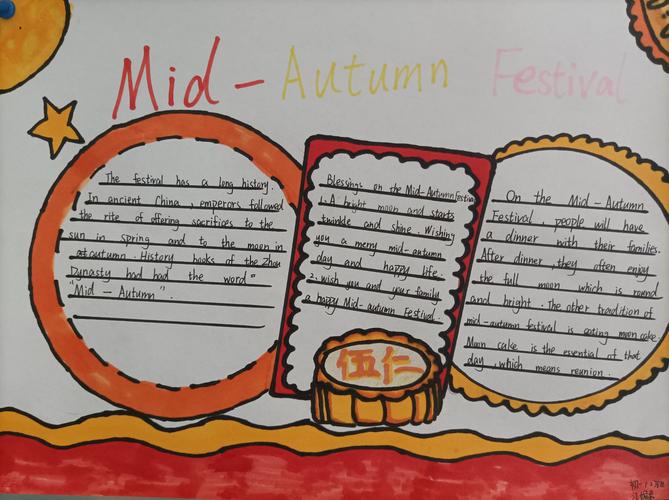 Mid - Autumn Festival
The festival has a long history.
In ancient China, emperors followed
the rite of offering sacrifices to the
sun in spring and to the moon in
autumn. History books of the Zhou
Dynasty had had the word "
"Mid - Autumn".
Blessings on the Mid-Autumn Festival
1. A bright moon and starts
twinkle and shine. Wishing
you a merry mid-autumn
day and happy life.
2. wish you and your family
a happy Mid-autumn Festival.
伍仁
On the Mid - Autumn
Festival, people will have
a dinner with their families.
After dinner, they often enjoy
the full moon which is round
and bright. The other tradition of
mid-autumn festival is eating moon cake.
Moon cake is the essential of that
day, which means reunion.